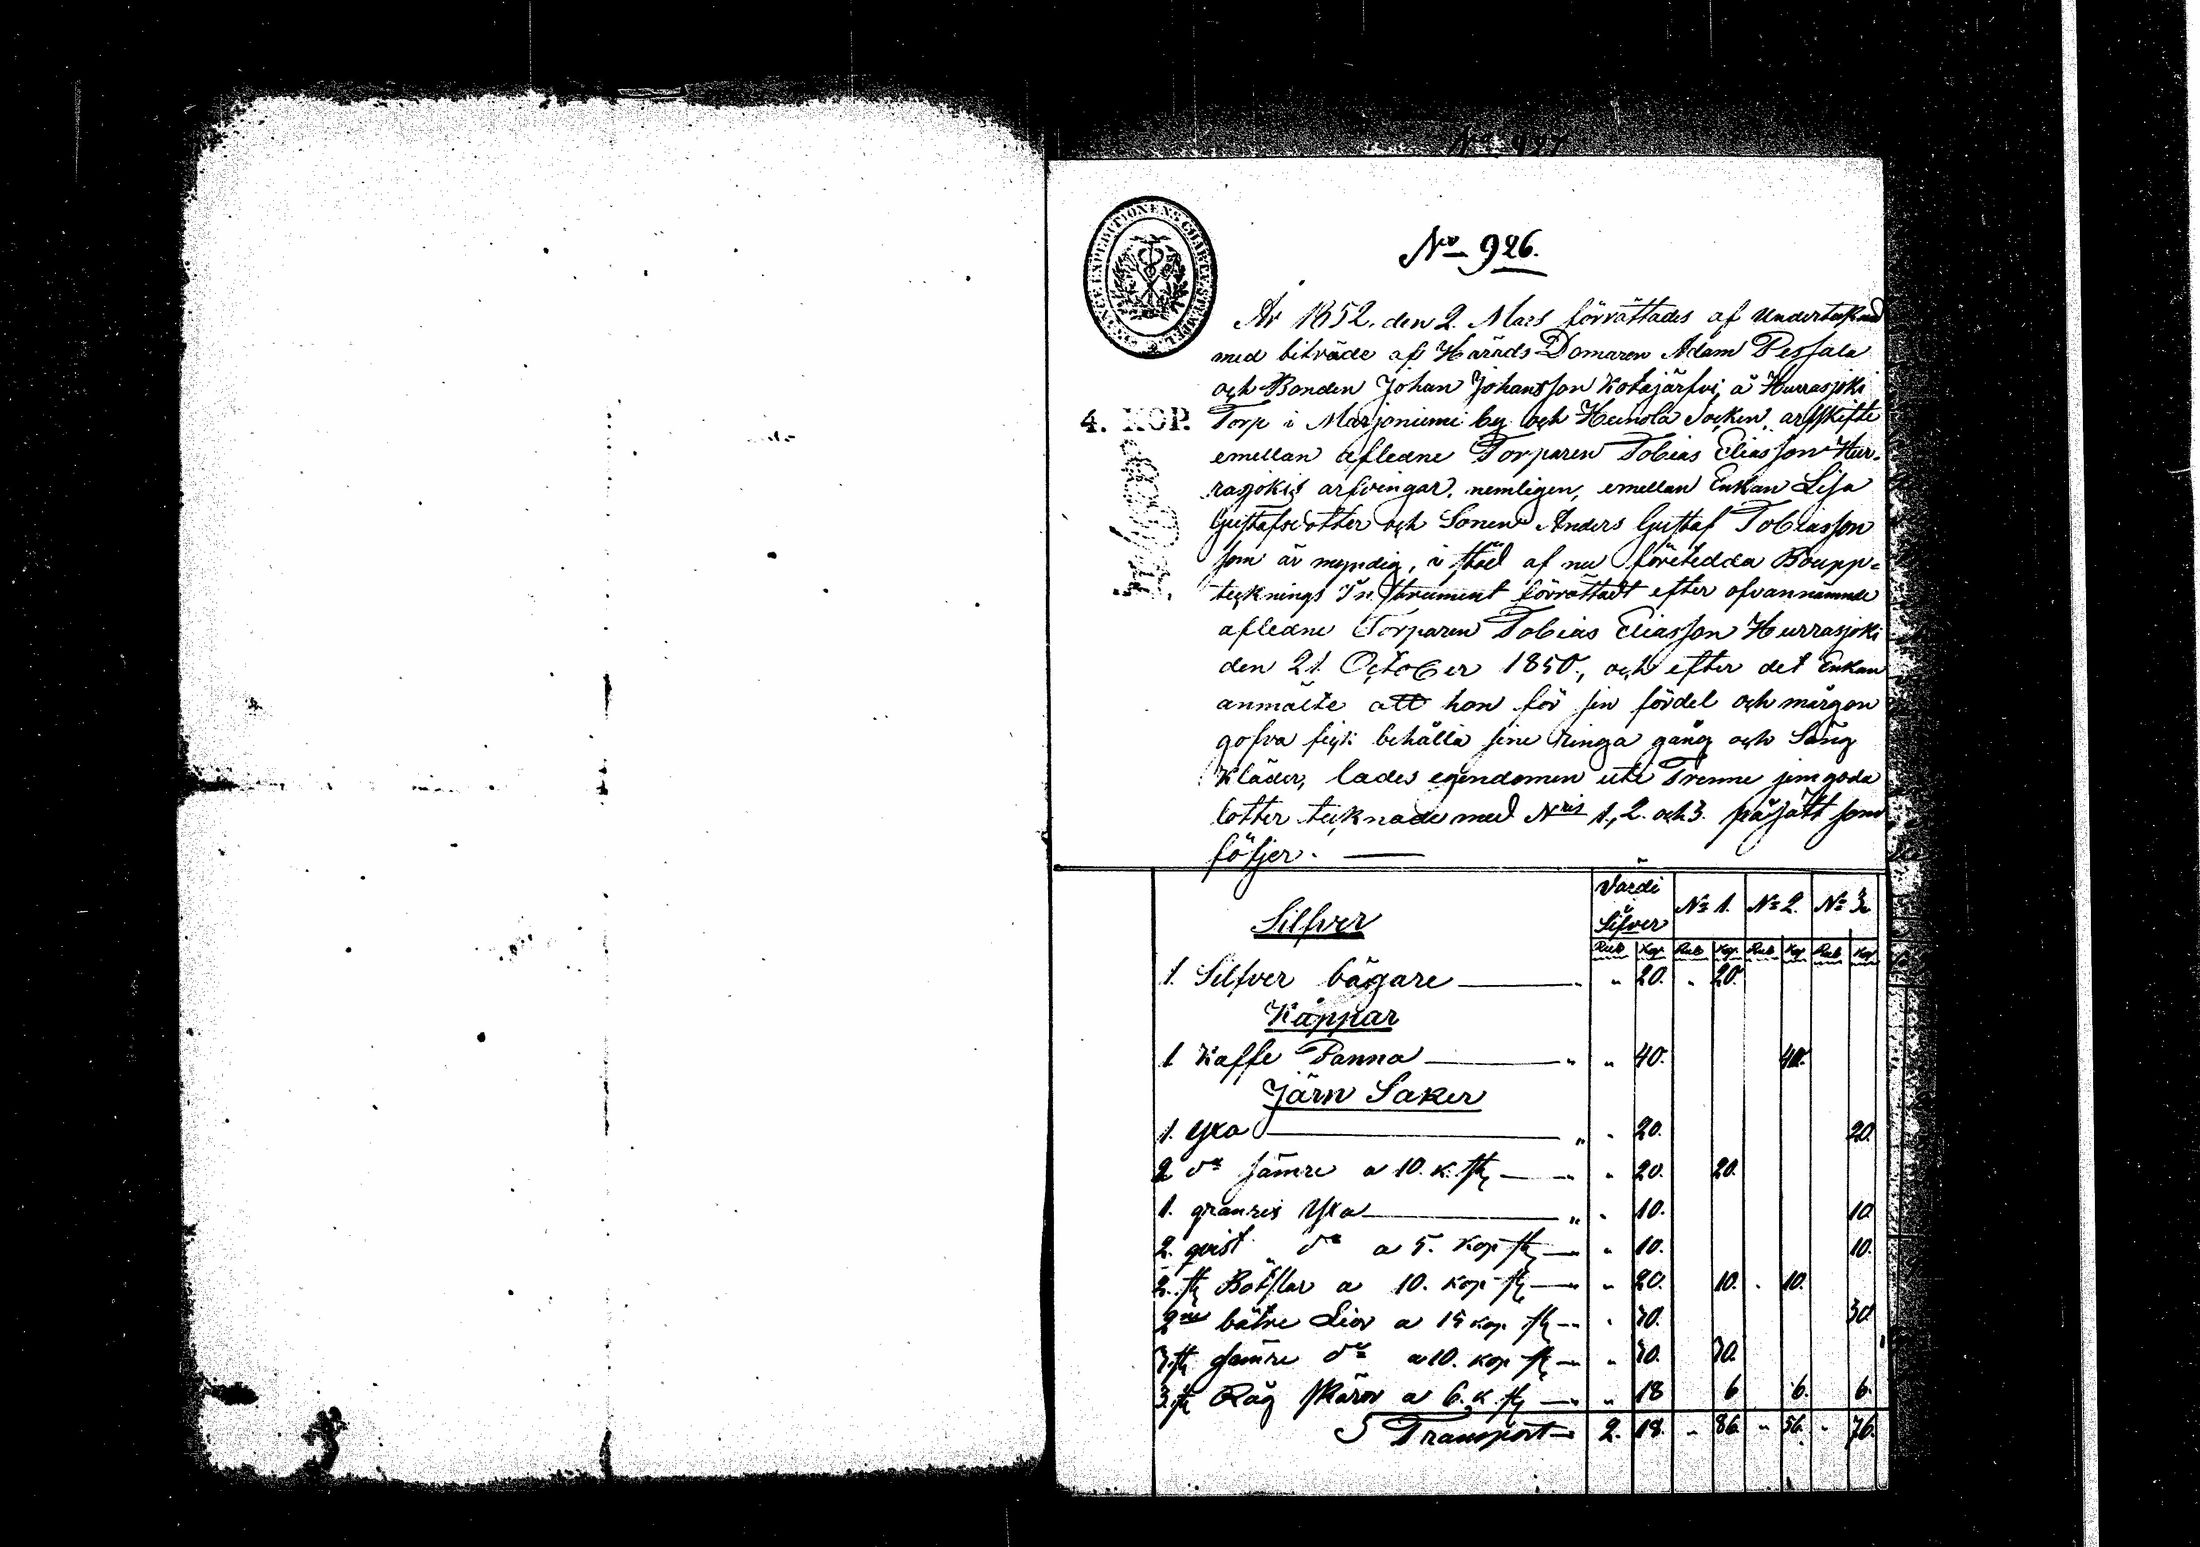 No 926.
År 1852. den 2. Mars förrättades af Underteknad
med biträde af Härads Domaren Adam Pessala
och Bonden Johan Johansson Kotajärfvi, å Hurrasjoki
4. KOP. Torp i Marjoniemi by och Heinola Socken, arfskifte
emellan afledne Torparen Tobias Eliasson Hur-
rasjokis arfvingar, nemligen, emellan Enkan Lisa
Gustafsdotter och Sonen Anders Gustaf Tobiasson
som är myndig, i stöd af nu företedda Boupp-
tecknings Instrument förrättadt efter ofvannämnde
afledne Torparen Tobias Eliasson Hurrasjoki
den 21. October 1850., och efter det Enkan
anmälte att hon för sin fördel och mårgon
gofva fick behålla sine ringa gång och Säng
Kläder, lades egendomen uti Trenne jemgoda
lotter tecknade med Nris 1., 2. och 3. på sätt som
följer.
Värdi Silfver No 1. No 2. No 3.
Silfver
Rub Kop Rub Kop Rub Kop Rub Kop
1. Silfver bägare " 20. " 20.
Kappar
1 Kaffe Panna " " 40. 40.
Järn Saker
1. Yxa " " 20. 20.
2 do sämre a 10. k. st " " 20. 20.
1. granris Yxa " " 10. 10.
2. qvist do a 5. Kop st " 10. 10.
2. st Bötslar a 10. kop st " 20. 10. 10.
2ne bätre Lior a 15 kop. st " 30. 30.
3. st sämre do a 10. kop st " 30. 30.
3 st Råg skäror a 6. k. st " 18 6 6. 6.
Transport 2. 18. " 86. " 56. " 76.